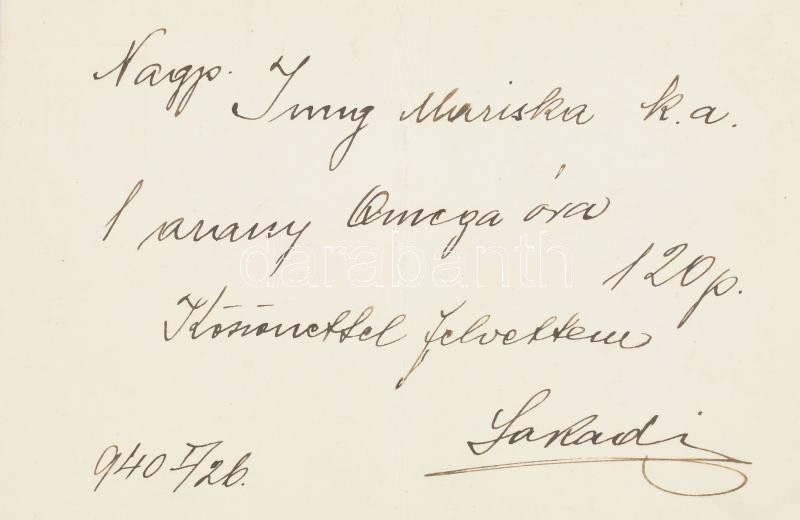 Nagys. Jung Mariska k.a.
1 arany Omega óra
120 p.
Köszönettel felvettem
Sakadi
940 I/26.
darabanth